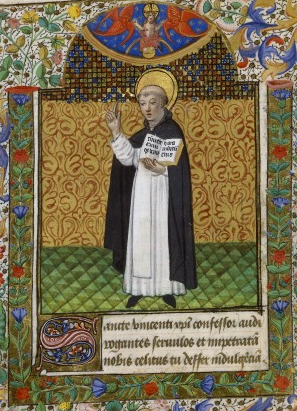 Sancte vincenti xpi confessor audi
rogantes servulos et impetratā
nobis celitus tu deffer indulgēciā.